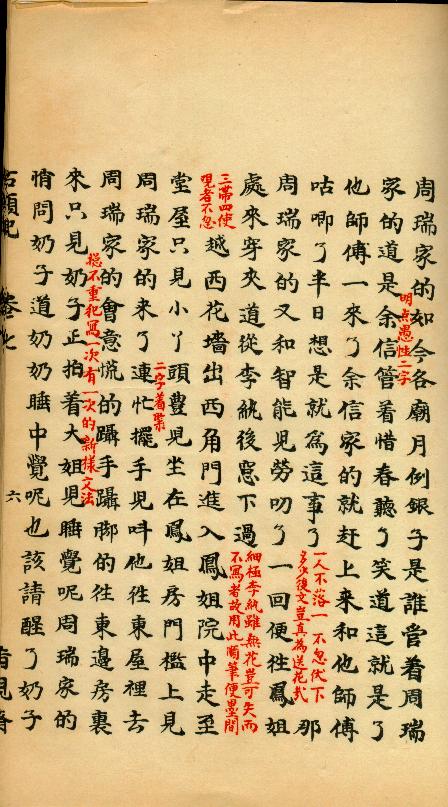 周瑞家的如今各廟月例銀子是誰管着周瑞
家的道是余信管着惜春聽了笑道這就是了
明点愚性二字
他師傅一來了余信家的就赶上来和他師傅
咕唧了半日想是就為這事了
一人不落一不忽伏下
多少後文豈真為送花哉
那
周瑞家的又和智能兒勞叨了一回便徃鳳姐
處來穿夾道從李紈後窓下過
細極李紈雖無花豈可失而
不寫者故用此順筆便墨間
三帶四使
觀者不忽
越西花墻出西角門進入鳳姐院中走至
堂屋只見小丫頭豐兒坐在鳳姐房門檻上見
二字着緊
周瑞家的来了連忙擺手兒呌他徃東屋裡去
周瑞家的會意慌的躡手躡脚的徃東邊房裏
總不重犯寫一次有一次的新樣文法
來只見奶子正拍着大姐兒睡覺呢周瑞家的
悄問奶子道奶奶睡中覺呢也該請醒了奶子
石頭記 卷七 六